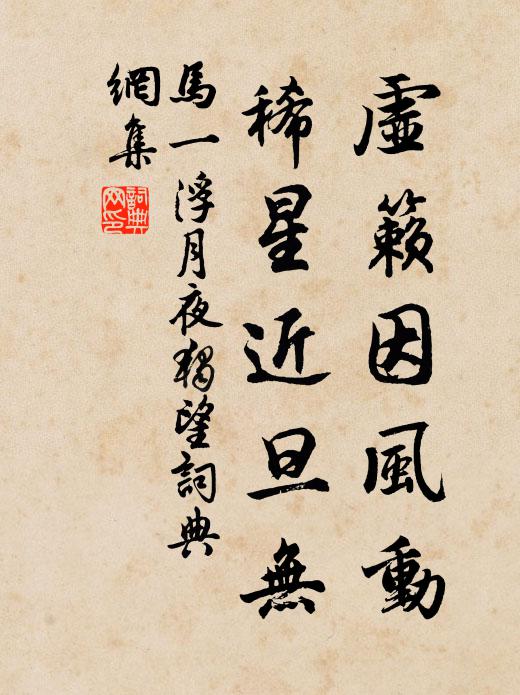 虛籟因風動
稀星近旦無
馬一浮月夜獨望詞典
網集
詞典
网印